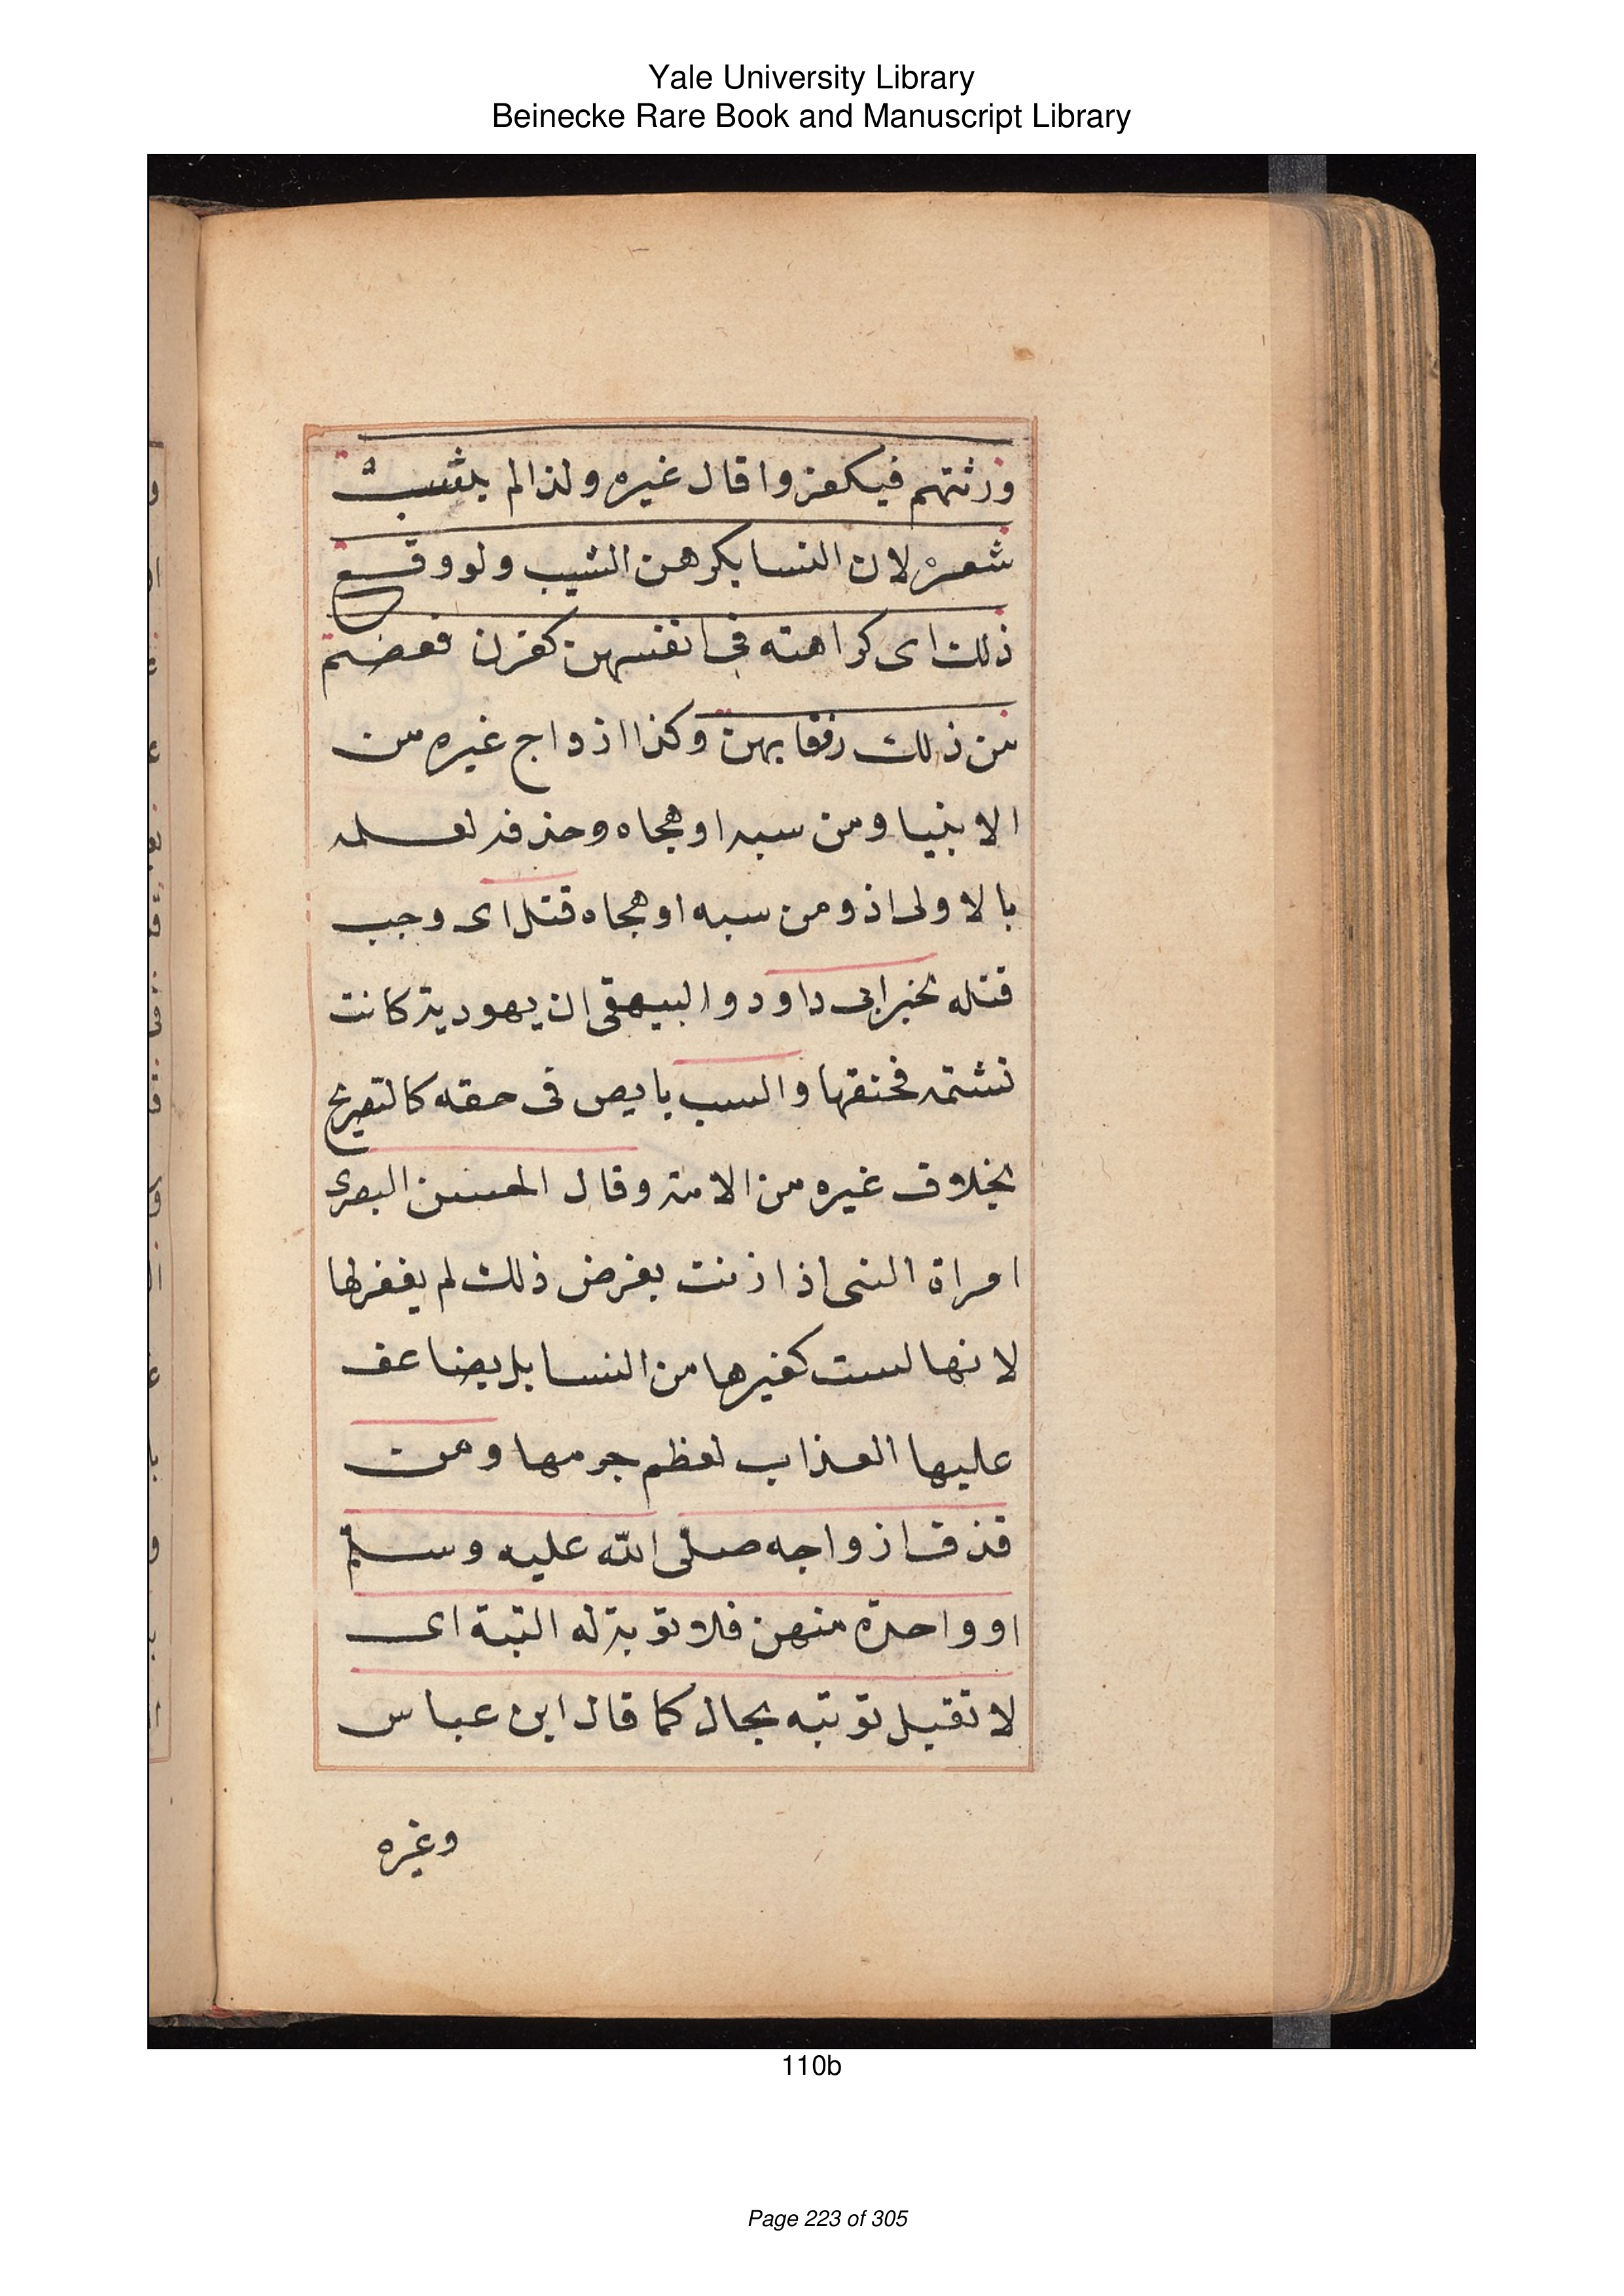 Yale University Library
Beinecke Rare Book and Manuscript Library
ورثتهم فيكفروا قال غيره ولذا لم يشب
شعره لان النسا يكرهن الشيب ولو وقع
ذلك اى كراهته فى انفسهن كفرن فعصم
من ذلك رفقا بهن وكذا ازواج غيره من
الانبيا ومن سبه او هجاه وحذفه لعلمه
بالاولى اذ ومن سبه او هجاه قتل اى وجب
قتله لخبر ابى داود والبيهقى ان يهودية كانت
تشتمه فخنقها والسب بايص فى حقه كالتصريح
بخلاف غيره من الامة وقال الحسن البصرى
امراة النبى اذا زنت بفرض ذلك لم يغفر لها
لانها ليست كغيرها من النسا بل يضاعف
عليها العذاب لعظم جرمها ومن
قذف ازواجه صلى الله عليه وسلم
او واحدة منهن فلا توبة له البتة اى
لا تقبل توبته بحال كما قال ابن عباس
وغيره
110b
Page 223 of 305